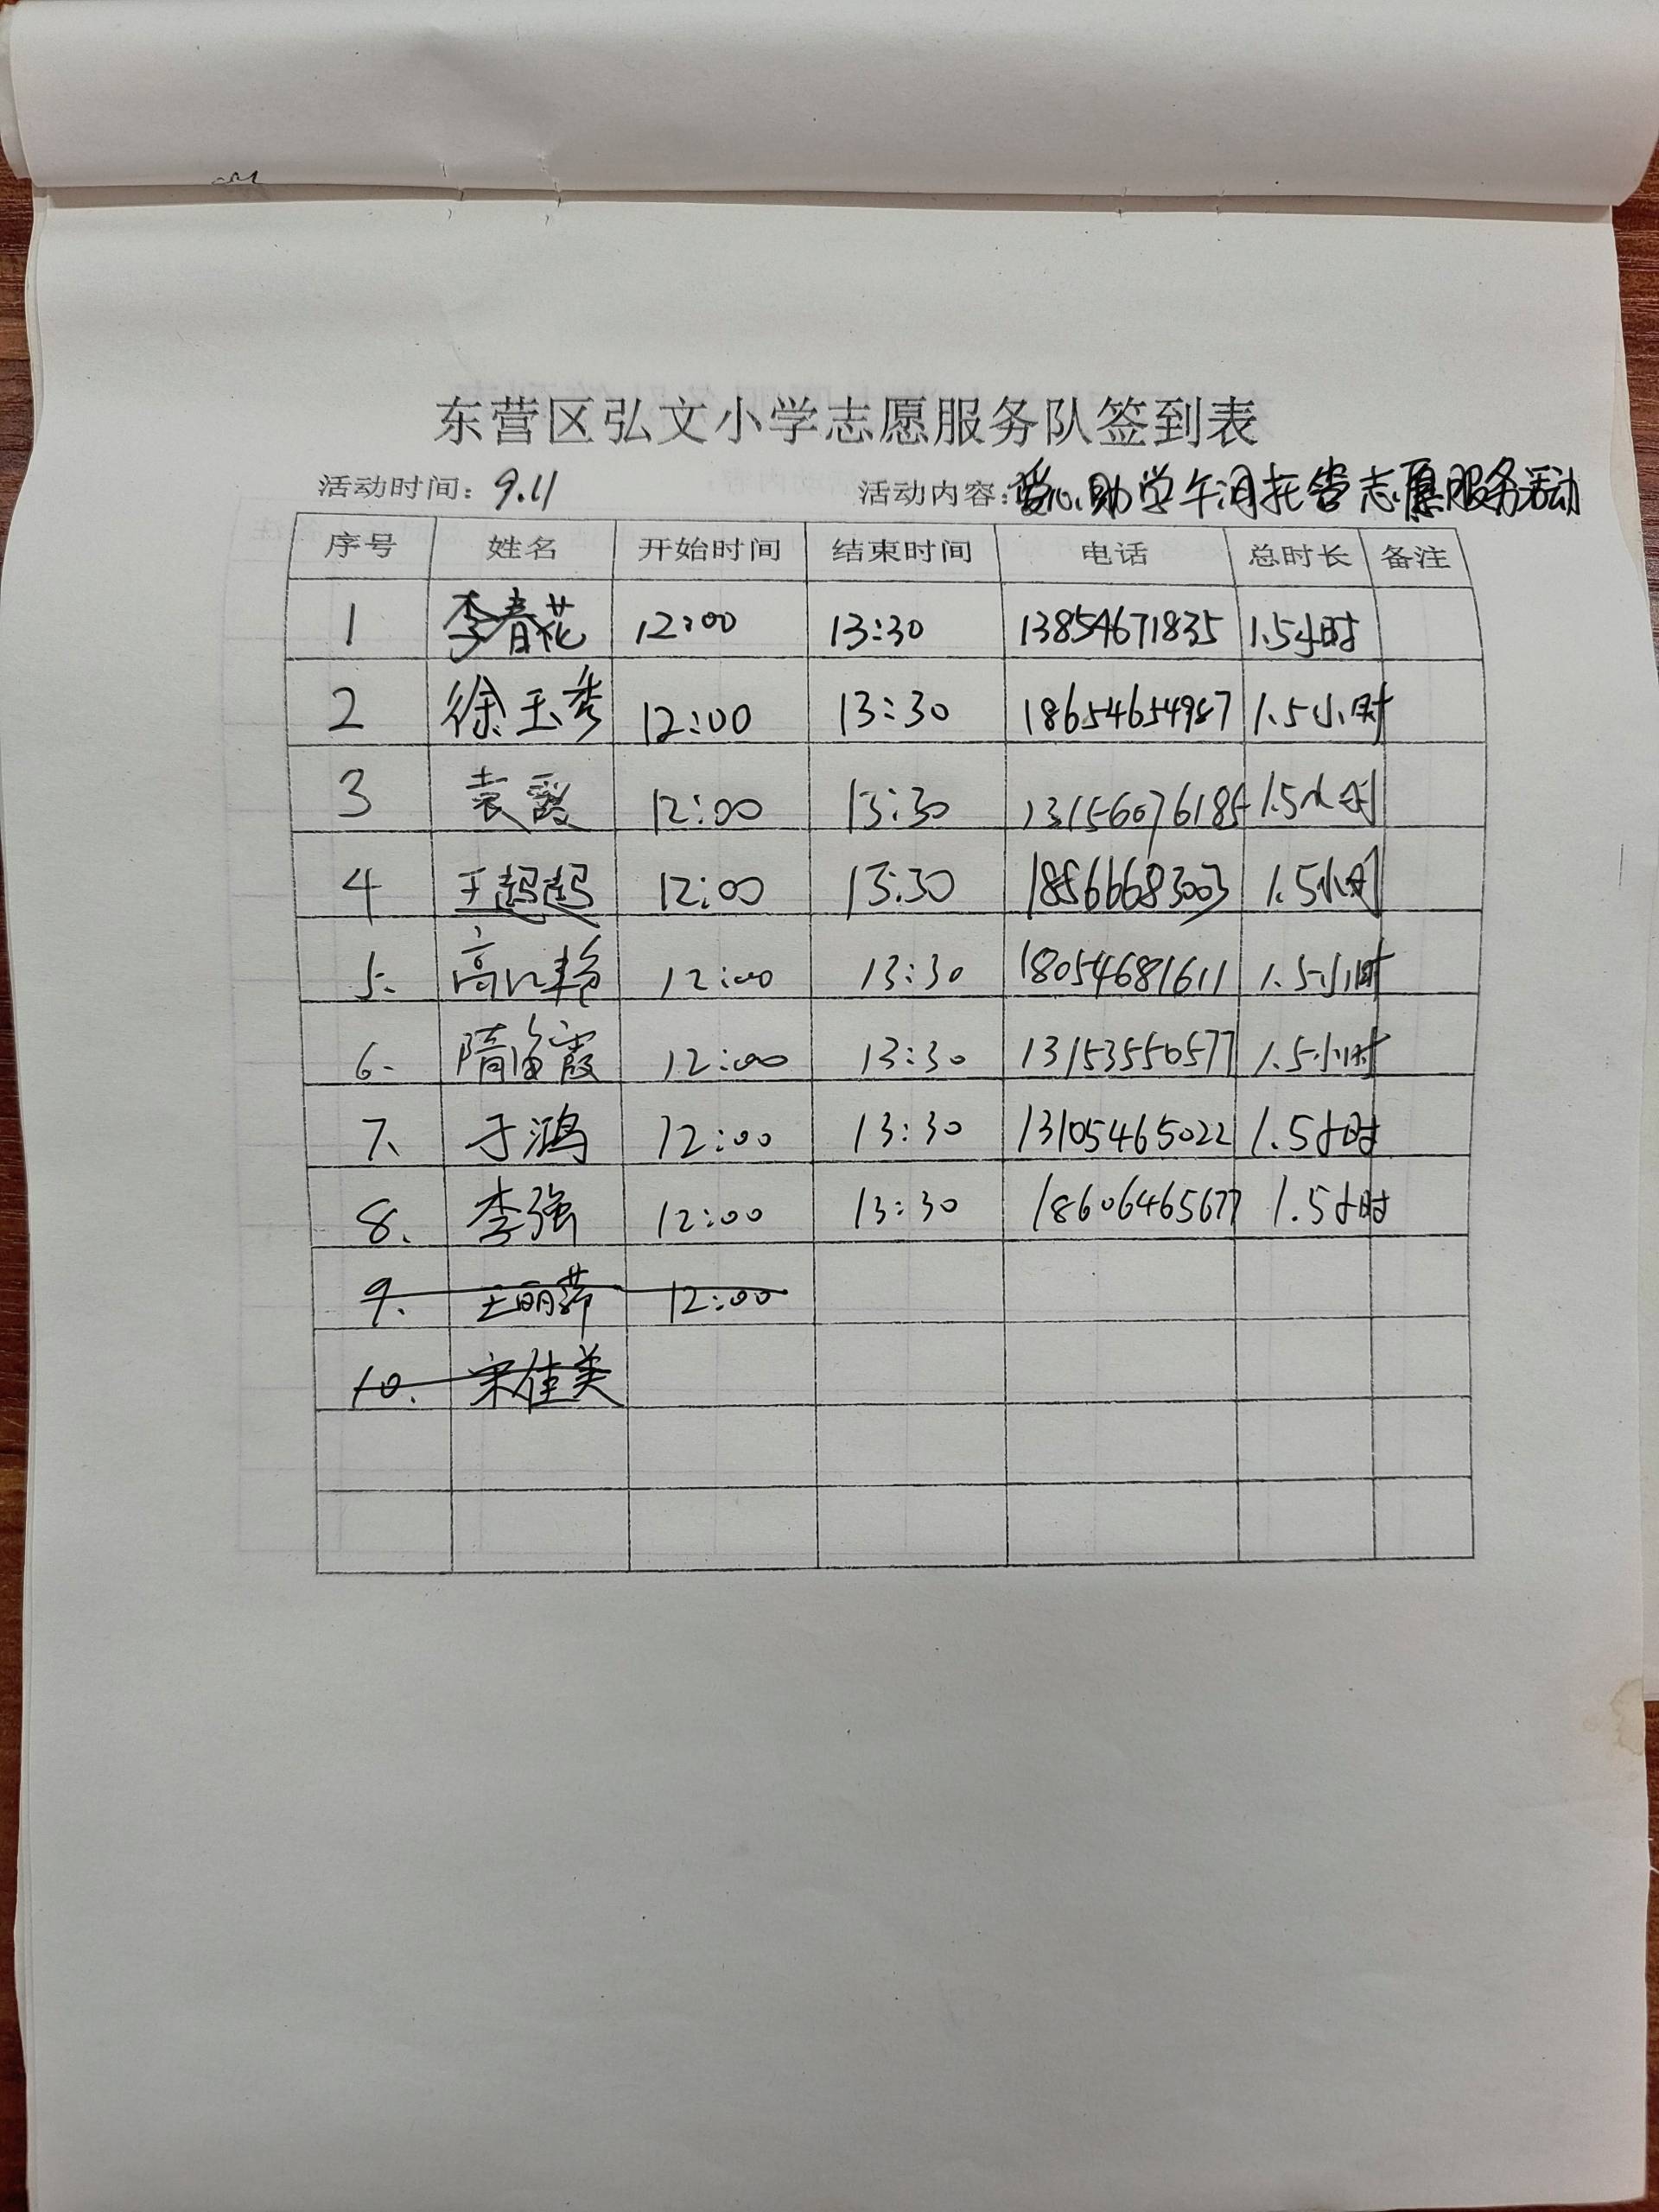 东营区弘文小学志愿服务队签到表
活动时间: 9.11 活动内容: 爱心助学午间托管志愿服务活动
序号 姓名 开始时间 结束时间 电话 总时长 备注
1 李春花 12:00 13:30 13854671835 1.5小时
2 徐玉秀 12:00 13:30 18654654987 1.5小时
3 袁霞 12:00 13:30 13156076185 1.5小时
4 王超超 12:00 13:30 18566683003 1.5小时
5. 高江艳 12:00 13:30 18054681611 1.5小时
6. 隋海霞 12:00 13:30 13153550577 1.5小时
7、 于鸿 12:00 13:30 13105465022 1.5小时
8、 李强 12:00 13:30 18606465677 1.5小时
9、 王丽萍 12:00
10、 宋佳美